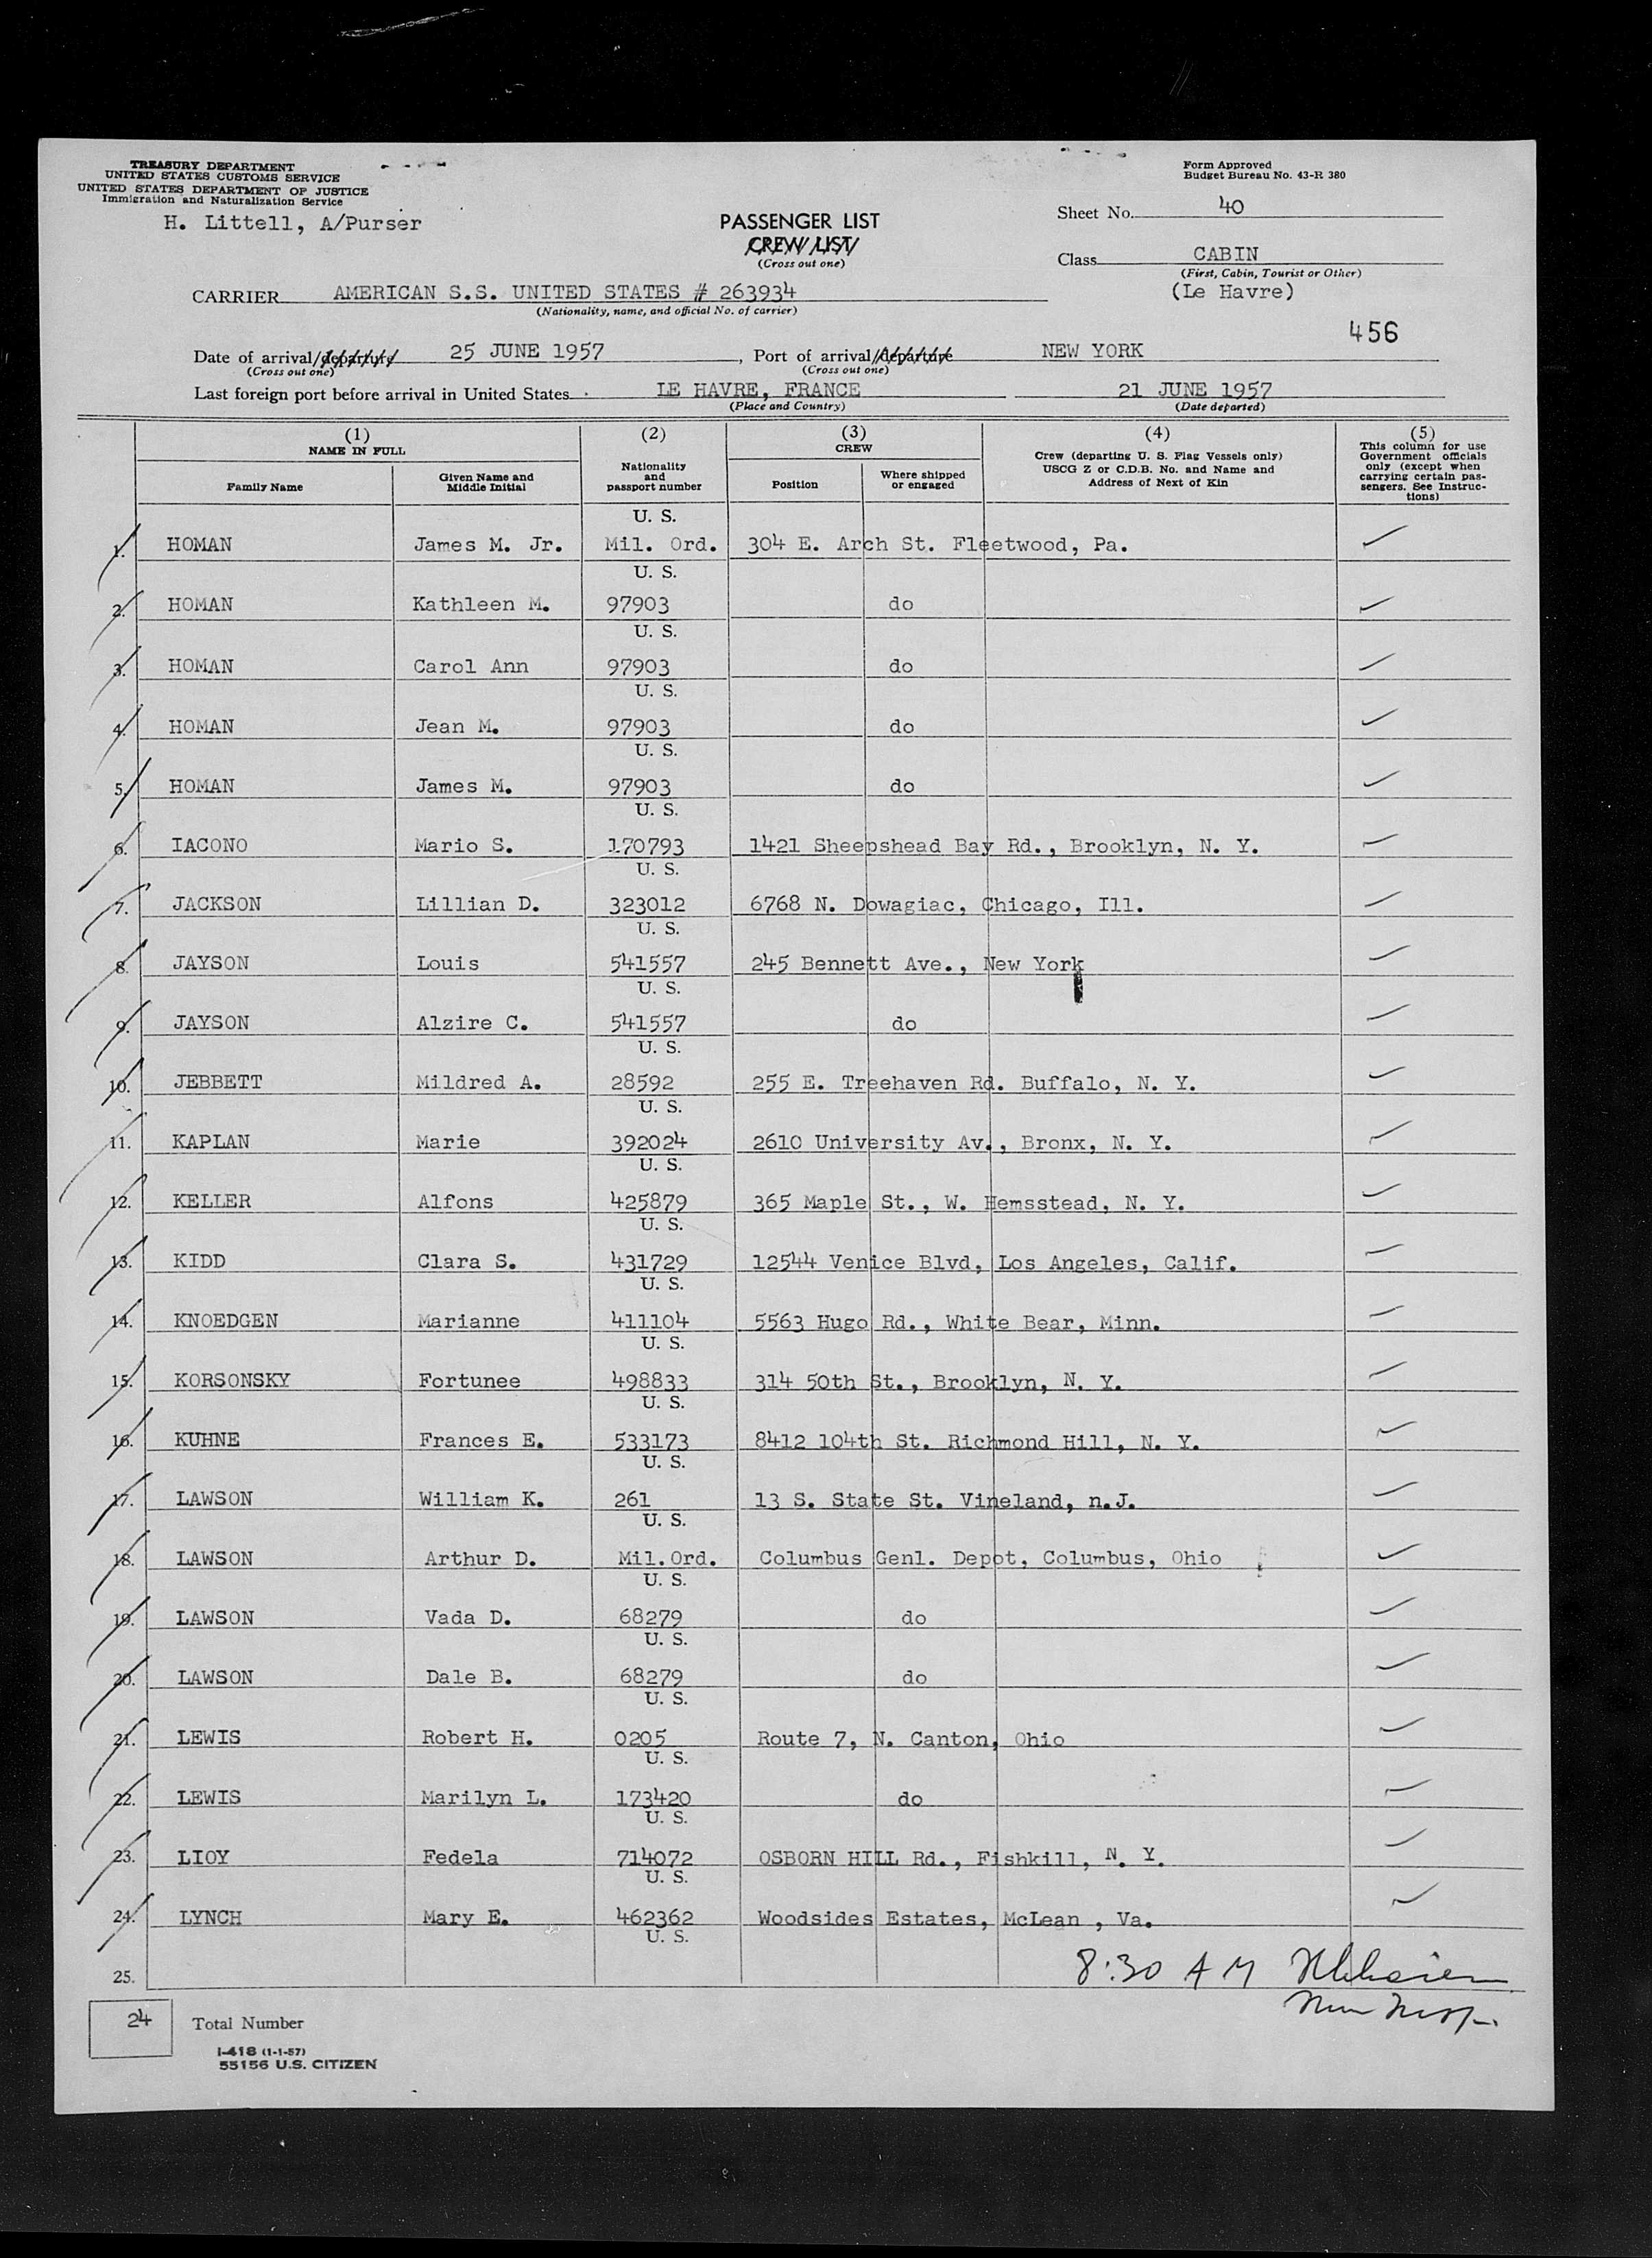 TREASURY DEPARTMENT
UNITED STATES CUSTOMS SERVICE
UNITED STATES DEPARTMENT OF JUSTICE
Immigration and Naturalization Service
H. Littell, A/Purser
Form Approved
Budget Bureau No. 43-R 380
PASSENGER LIST
CREW LIST
(Cross out one)
Sheet No. 40
Class CABIN
(First, Cabin, Tourist or Other)
(Le Havre)
CARRIER AMERICAN S.S. UNITED STATES # 263934
(Nationality, name, and official No. of carrier)
456
Date of arrival/departure 25 JUNE 1957, Port of arrival/departure NEW YORK
(Cross out one) (Cross out one)
Last foreign port before arrival in United States LE HAVRE, FRANCE 21 JUNE 1957
(Place and Country) (Date departed)
(1) (2) (3) (4) (5)
NAME IN FULL
Family Name
Given Name and Middle Initial
Nationality and passport number
CREW
Position
Where shipped or engaged
Crew (departing U. S. Flag Vessels only)
USCG Z or C.D.B. No. and Name and
Address of Next of Kin
This column for use
Government officials
only (except when
carrying certain pas-
sengers. See Instruc-
tions)
U. S.
1. HOMAN James M. Jr. Mil. Ord. 304 E. Arch St. Fleetwood, Pa.
U. S.
2. HOMAN Kathleen M. 97903 do
U. S.
3. HOMAN Carol Ann 97903 do
U. S.
4. HOMAN Jean M. 97903 do
U. S.
5. HOMAN James M. 97903 do
U. S.
6. IACONO Mario S. 170793 1421 Sheepshead Bay Rd., Brooklyn, N. Y.
U. S.
7. JACKSON Lillian D. 323012 6768 N. Dowagiac, Chicago, Ill.
U. S.
8. JAYSON Louis 541557 245 Bennett Ave., New York
U. S.
9. JAYSON Alzire C. 541557 do
U. S.
10. JEBBETT Mildred A. 28592 255 E. Treehaven Rd. Buffalo, N. Y.
U. S.
11. KAPLAN Marie 392024 2610 University Av., Bronx, N. Y.
U. S.
12. KELLER Alfons 425879 365 Maple St., W. Hemsstead, N. Y.
U. S.
13. KIDD Clara S. 431729 12544 Venice Blvd, Los Angeles, Calif.
U. S.
14. KNOEDGEN Marianne 411104 5563 Hugo Rd., White Bear, Minn.
U. S.
15. KORSONSKY Fortunee 498833 314 50th St., Brooklyn, N. Y.
U. S.
16. KUHNE Frances E. 533173 8412 104th St. Richmond Hill, N. Y.
U. S.
17. LAWSON William K. 261 13 S. State St. Vineland, n.J.
U. S.
18. LAWSON Arthur D. Mil.Ord. Columbus Genl. Depot, Columbus, Ohio
U. S.
19. LAWSON Vada D. 68279 do
U. S.
20. LAWSON Dale B. 68279 do
U. S.
21. LEWIS Robert H. 0205 Route 7, N. Canton, Ohio
U. S.
22. LEWIS Marilyn L. 173420 do
U. S.
23. LIOY Fedela 714072 OSBORN HILL Rd., Fishkill, N. Y.
U. S.
24. LYNCH Mary E. 462362 Woodsides Estates, McLean , Va.
U. S.
25. 8:30 AM
24 Total Number
I-418 (1-1-57)
55156 U.S. CITIZEN